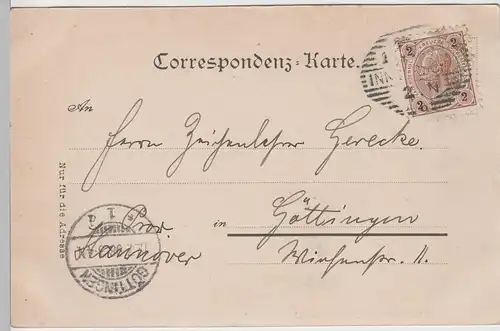 Correspondenz-Karte.
An
Herrn Zeichenlehrer Gerecke.
in Göttingen
Prov. Hannover
Nur für die Adresse
2 2
2 2
INN
GÖTTINGEN